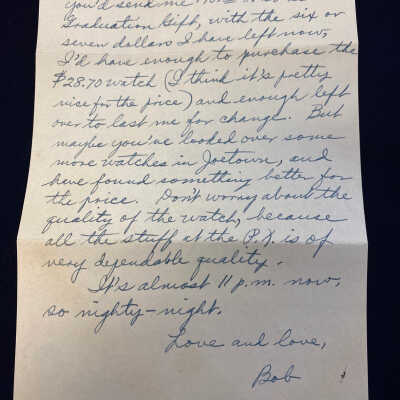 you'd send me
Graduation Gift, with the six or
seven dollars I have left now,
I'd have enough to purchase the
$28.70 watch (I think it's pretty
nice for the price) and enough left
over to last me for change. But
maybe you've looked over some
more watches in Joetown, and
have found something better for
the price. Don't worry about the
quality of the watch, because
all the stuff at the P.X. is of
very dependable quality.
It's almost 11 p.m. now,
so nighty-night.
Love and love,
Bob